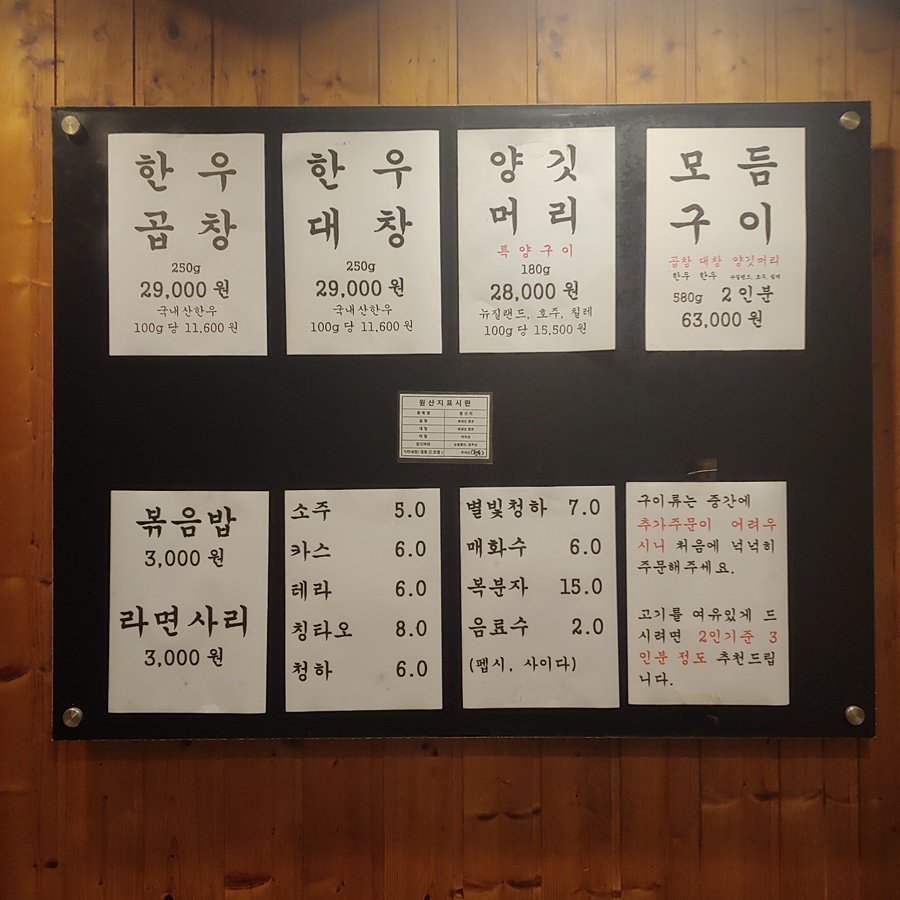 한 우
곱 창
250g
29,000 원
국내산한우
100g 당 11,600 원
한 우
대 창
250g
29,000 원
국내산한우
100g 당 11,600 원
양 깃
머 리
특 양 구 이
180g
28,000 원
뉴질랜드, 호주, 칠레
100g 당 15,500 원
모 듬
구 이
곱창 대창 양깃머리
한우 한우 뉴질랜드, 호주, 칠레
580g 2 인분
63,000 원
원산지표시판
볶음밥
3,000 원
라면사리
3,000 원
소주 5.0
카스 6.0
테라 6.0
칭타오 8.0
청하 6.0
별빛청하 7.0
매화수 6.0
복분자 15.0
음료수 2.0
(펩시, 사이다)
구이류는 중간에
추가주문이 어려우
시니 처음에 넉넉히
주문해주세요.
고기를 여유있게 드
시려면 2인기준 3
인분 정도 추천드립
니다.